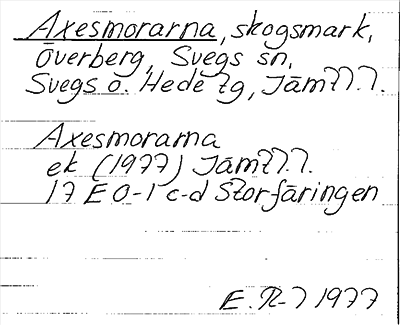 Axesmorarna, skogsmark,
Överberg, Svegs sn,
Svegs o. Hede tg, Jämtl.l.
Axesmorarna
ek (1977) Jämtl.l.
17 E 0-1 c-d Storfåringen
E. R-7 1977